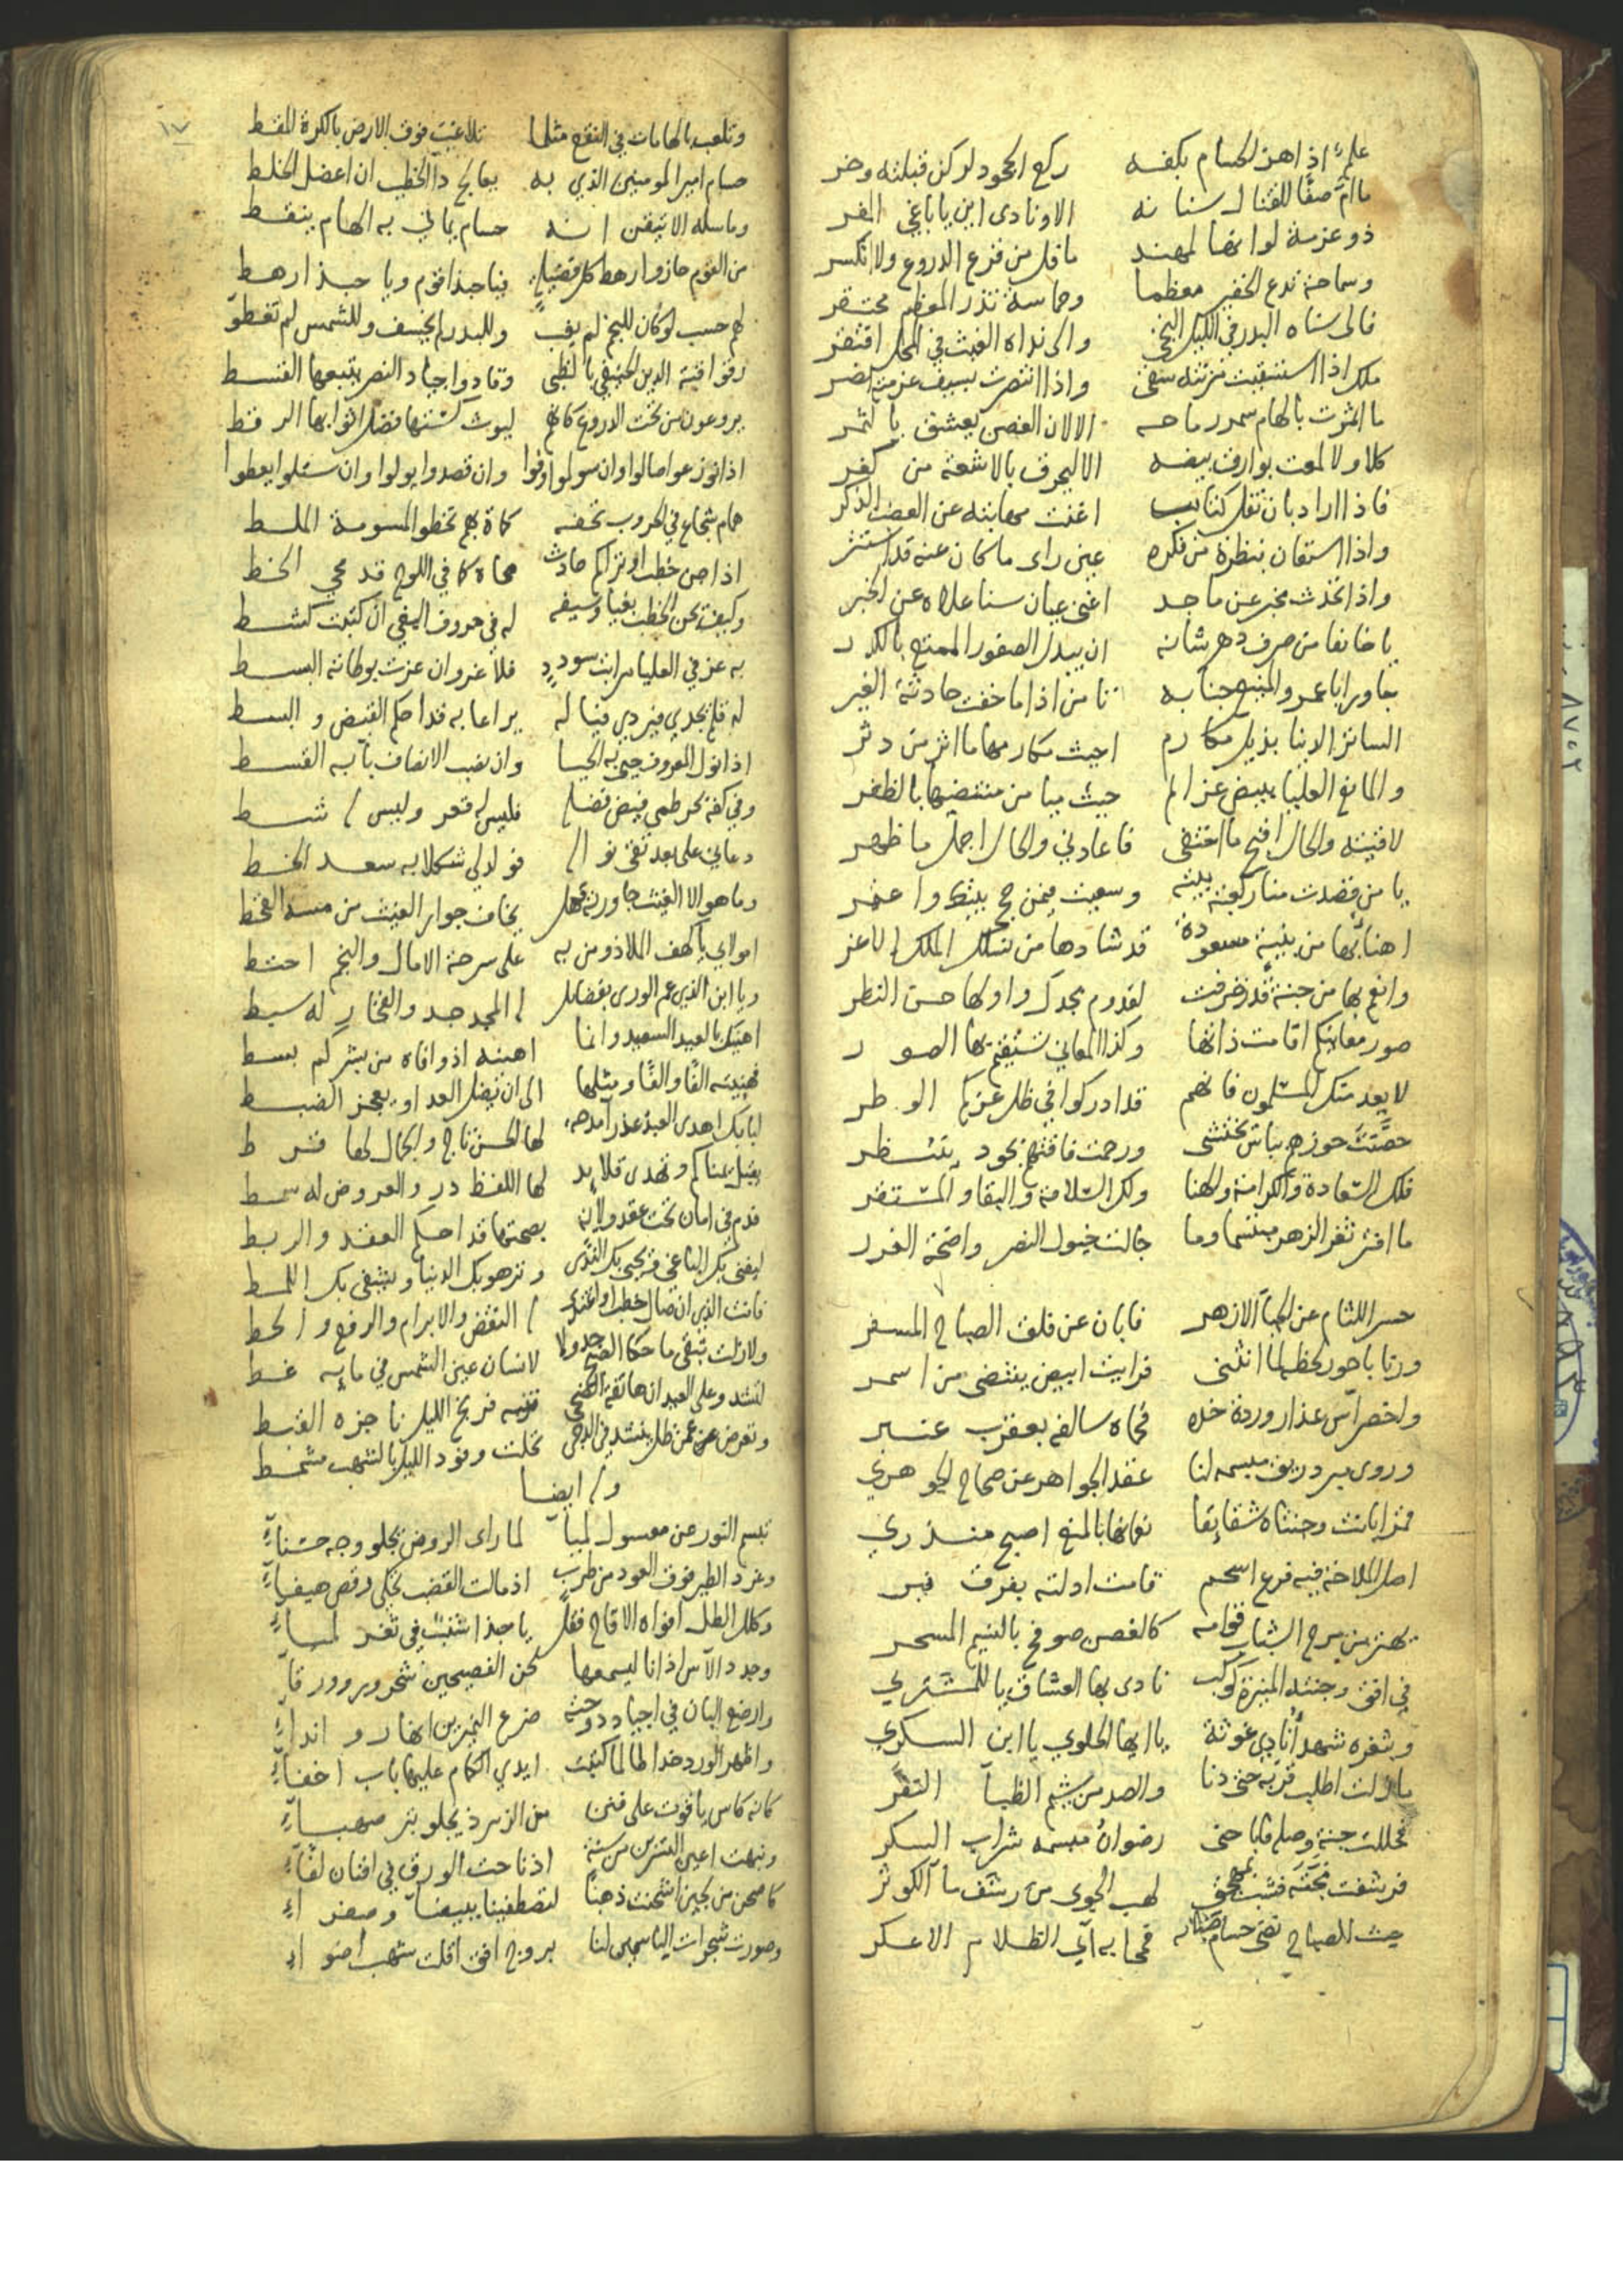 علم اذا هز الحسام بكفه ركع الجحود لركن قبلته وخر
ما امّ صفّا للقتال سنانه الا ونادى اين يا باغي المفر
ذو عزمة لو انها لمهند ما فل من قرع الدروع ولا انكسر
وسماحة تدع الحقير معظما وحماسة تذر المعظم محتقر
فالى سناه البدر في الليل التجى والى نداه الغيث في المحل افتقر
ملك اذا استسقيت مزنته سقى واذا انتصرت بسيف عزمته انتصر
ما اثمرت بالهام سمر رماحه الا لان الغصن يعشق بالثمر
كلا ولا لمعت بوارق بيضه الا ليحرق بالاشعة من كفر
فاذا اراد بان تفل كتائب اغنت مهابته عن العضب الذكر
واذا استعان بنظرة من فكره عين راى ما كان عنه قد استتر
واذا تحدث مخبر عن ماجد اغنى عيان سنا علاه عن الخبر
يا خائفا من صرف دهر شانه ان يبدل الصفو الممنع بالكدر
جاور ابا عمرو المنيع جنابه تامن اذا ما خفت حادثة الغير
الساتر الدنيا بذيل مكارم احيت مكارمها ما اثر من دثر
والمانع العليا ببيض عزائم حيث ميامن منتضيها بالظفر
لاقيته والحال اقبح ما اختفى فاعادني والحال اجمل ما ظهر
يا من قصدت منار كعبة بيته وسعيت فيمن حج بيتك واعتمر
اهنا بها من بنية مسعودة قد شادها من نسلك الملك الاغر
وانعم بها من جنة قد زخرفت لقدوم مجدك واولها حسن النظر
صور معانيكم اقامت ذاتها وكذا المعاني تستقيم بها الصور
لا يعدمنك المسلمون فانهم قد ادركوا في ظل عزكم الوطر
حصّنت حوزهم بباس يختشى ورحمت فاقتهم بجود ينتظر
فلك السعادة والكرامة والهنا ولك السلامة والبقا والمستقر
ما افتر ثغر الزهر مبتسما وما جالت خيول النصر واضحة الغرر
حسر اللثام عن المحيا الازهر فابان عن فلق الصباح المسفر
ورنا باحور لحظه لما انثنى فرايت ابيض ينتضى من اسمر
واخضر آس عذار وردة خده فحماه سالفه بعقرب عنبر
وروى ببرد بريق مبسمه لنا عقد الجواهر عن صحاح الجوهري
قمر ابانت وجنتاه شقائقا نعمانها بالمنع اصبح منذري
اصل الملاحة فيه فرع اسحم قامت ادلته بفرق نير
يهتز من مرح الشباب قوامه كالغصن صوفح بالنسيم المسحر
في افق وجنته المنيرة كوكب نادى بها العشاق يا للمشتري
وبثغره شهد أنادي غوثه يا ايها الحلوي يا ابن السكري
ما زلت اطلب قربه حتى دنا والصد من شيم الظبا النفر
فحللت جنة وصله فاباحني رضوان مبسمه شراب المسكر
فرشفت لهب الجوى من رشف ما الكوثر
حيث الصباح نضى حسام ضيائه فمحا به آي الظلام الاعكر
١٧
وتلعب بالهامات في النقع مثلما تلاعبت فوق الارض بالكرة اللقط
حسام امير المومنين الذي به يعالج دآ الخطب ان اعضل الخلط
وما سله الا تيقن انه حسام يماني به الهام ينقط
من القوم حازوا رهط كل فضيلة فيا حبذا قوم ويا حبذا رهط
لهم حسب لو كان للنجم لم يغب وللبدر لم يخسف وللشمس لم تغط
رقوا قبة الدين الحنيفي بالظبى وقادوا جياد النصر يتبعها القسط
يروعون من تحت الدروع كانهم ليوث كستها فضل اثوابها الرقط
اذا نوزعوا صالوا وان سولموا وفوا وان قصدوا يولوا وان سئلوا يعطوا
همام شجاع في الحروب تحفه كماة بهم تخطو المسومة الملط
اذا صر خطب او نزا لهم حادث محاه كما في اللوح قد محي الخط
وكيف يحق الخطب بغيا وسيفه له في حروف البغي ان كتبت كشط
به عز في العليا مراتب سودد فلا غرو ان عزت بوطائه البسط
له قلم يجدي فيردي فيا له يراعا به قد احكم القبض والبسط
اذا نزل المعروف حيى به الحيا وان نصب الانصاف باهى به القسط
وفي كفه بحر طمى فيض فضله فليس له قعر وليس له شط
دعاني على بعد تقى نواله فولد لي شكلا به سعد الخط
وما هو الا الغيث جاورته وهل يخاف جوار الغيث من مسه القحط
امولاي يا كهف الملاذ ومن به على سرحة الامال والنجم احتط
ويا ابن الذي عم الورى بفضايل له المجد جد والفخار له سبط
اهنيك بالعيد السعيد وانما اهنيه اذ وافاه من بشركم بسط
فهنيته الفا والفا ومثلها الى ان يضل العد او يعجز الضبط
لبابك اهدى العبد عذر آمدحه لها الحسن تاج والجمال لها قرط
يقبل يمناكم وتهدى قلايد لها اللفظ در والعروض له سمط
فدم في امان تحت عقد ولاية بصحتها قد احكم العقد والربط
ليفنى بك الباغي فيحيى بك الندى وتزهو بك الدنيا ويشقى بك اللط
فانت الذي ان صال خطب او اعتدى له النقض والابرام والرفع والحط
ولا زلت تبقى ما حكا الصبح جدولا لانسان عين الشمس في مايه غط
وله ايضا
تبسم النور عن معسول لمياء لما راى الروض يجلو وجه حسناء
وغرد الطير فوق العود من طرب اذ مالت القضب تحكي رقص هيفاء
وكلل الطل افواه الاقاح فقل يا حبذا شنب في ثغر لمياء
وجدد الآس اذانا ليسمعها لحن الفصيحين شحرور وورقاء
وارضع البان في اجياد دوحته ضرع النميرين انهار وانداء
واظهر الورد خدا طالما كتبت ايدي الكمام عليها باب اخفاء
كانه كاس ياقوت على فنن من الزمرد يجلو بنر صهباء
ونبهت اعين النسرين من سنة اذ ناحت الورق في افنان لفاء
كاصحن من لجين اشحنت ذهبا لتصطفينا ببيضا وصفراء
وصورت شجرات الياسمين لنا بروج افق اقلت شهب اضواء